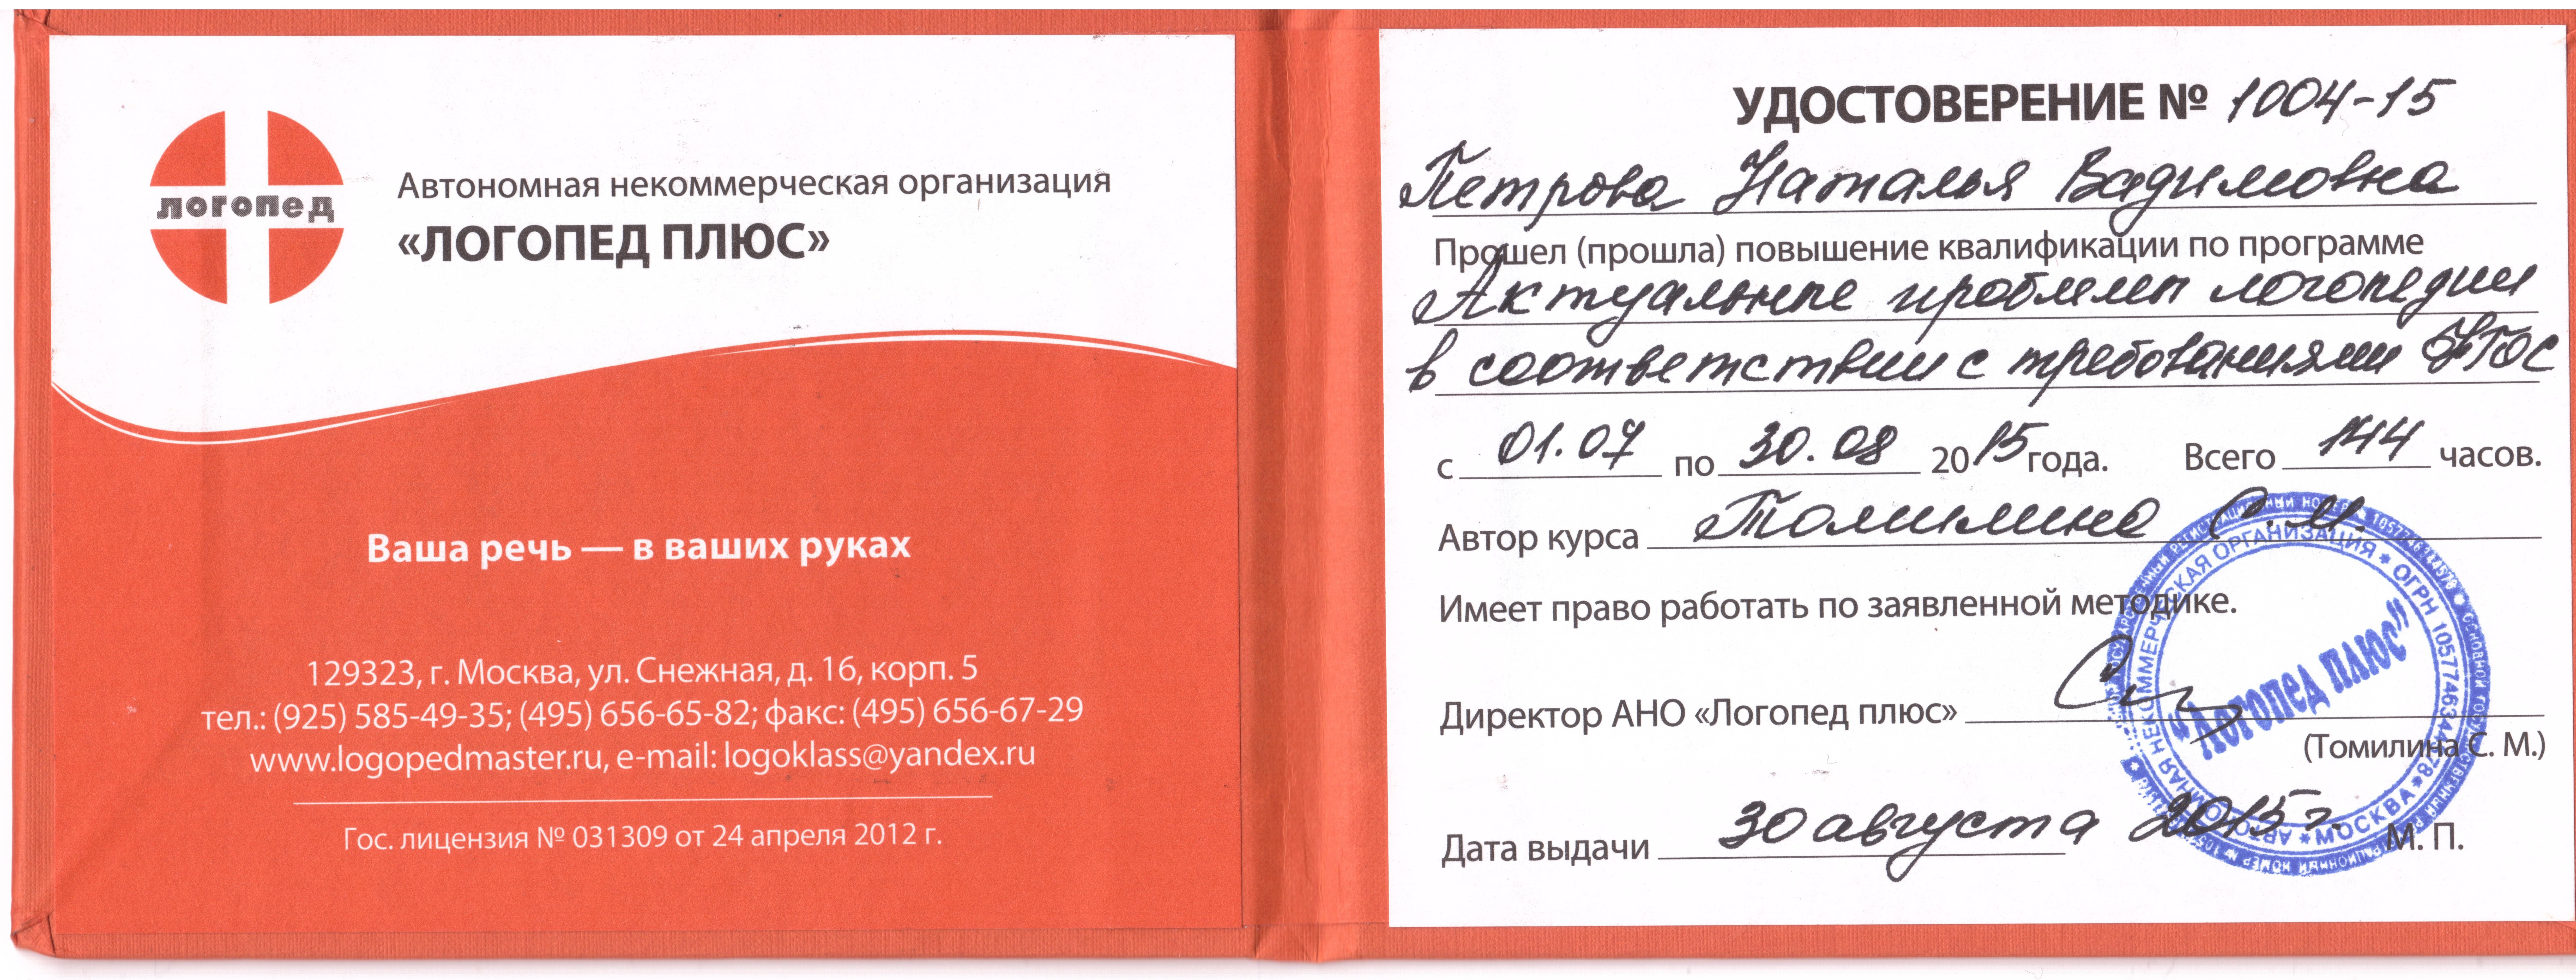 логопед
Автономная некоммерческая организация
«ЛОГОПЕД ПЛЮС»
Ваша речь — в ваших руках
129323, г. Москва, ул. Снежная, д. 16, корп. 5
тел.: (925) 585-49-35; (495) 656-65-82; факс: (495) 656-67-29
www.logopedmaster.ru, e-mail: logoklass@yandex.ru
Гос. лицензия № 031309 от 24 апреля 2012 г.
УДОСТОВЕРЕНИЕ № 1004-15
Петрова Наталья Вадимовна
Прошел (прошла) повышение квалификации по программе
Актуальные проблемы логопедии
в соответствии с требованиями ФГОС
с 01.07 по 30.08 2015 года. Всего 144 часов.
Автор курса Томилина С.М.
Имеет право работать по заявленной методике.
Директор АНО «Логопед плюс»
(Томилина С. М.)
Дата выдачи 30 августа 2015 г.
М. П.
АВТОНОМНАЯ НЕКОММЕРЧЕСКАЯ ОРГАНИЗАЦИЯ * ОГРН 1057746344578 * МОСКВА *
"Логопед плюс"